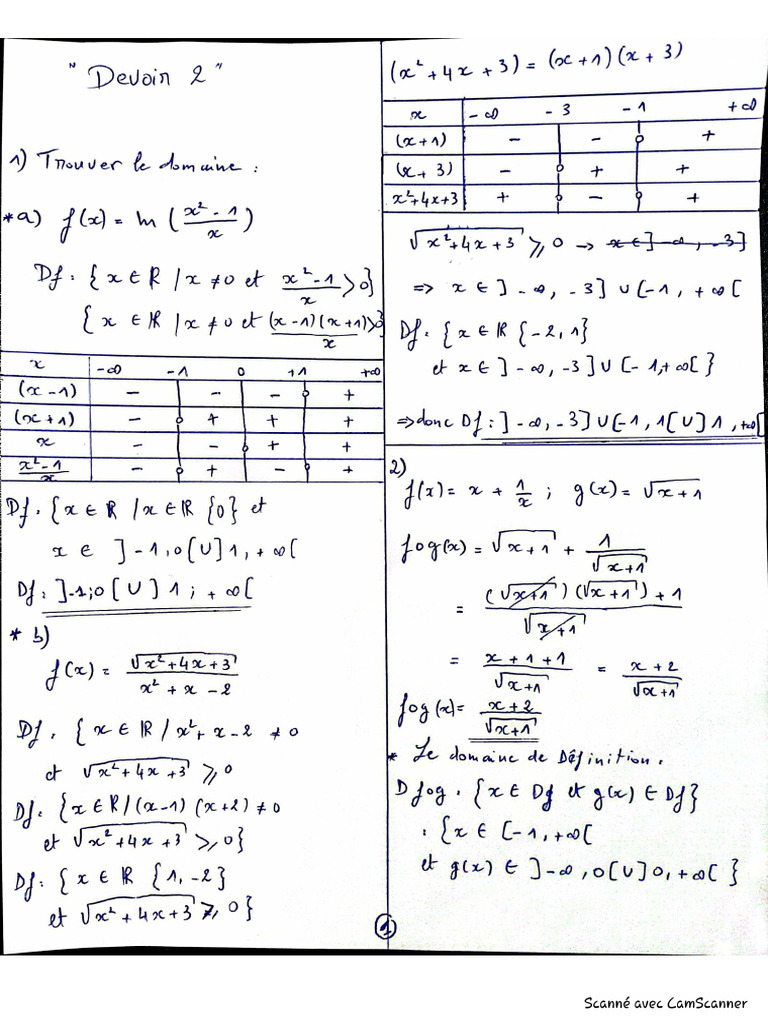 "Devoir 2"
1) Trouver le domaine :
* a) f(x) = ln ( (x² - 1) / x )
Df : { x ∈ ℝ / x ≠ 0 et (x² - 1)/x > 0}
{ x ∈ ℝ / x ≠ 0 et (x-1)(x+1)/x > 0}
x | -∞ -1 0 +1 +∞
(x - 1) | - - - +
(x + 1) | - + + +
x | - - + +
(x² - 1)/x | - + - +
Df : { x ∈ ℝ / x ∈ ℝ {0} et
x ∈ ]-1, 0[ U ]1, +∞[
Df : ]-1; 0[ U ]1 ; +∞[
* b)
f(x) = √(x² + 4x + 3) / (x² + x - 2)
Df : { x ∈ ℝ / x² + x - 2 ≠ 0
et √(x² + 4x + 3) ≥ 0
Df : { x ∈ ℝ / (x-1) (x+2) ≠ 0
et √(x² + 4x + 3) ≥ 0}
Df : { x ∈ ℝ {1, -2}
et √(x² + 4x + 3) ≥ 0}
(x² + 4x + 3) = (x+1) (x + 3)
x | -∞ -3 -1 +∞
(x+1) | - - +
(x + 3) | - + +
x²+4x+3 | + - +
√(x²+4x+3) ≥ 0 → x ∈ ]-∞, -3]
⇒ x ∈ ]-∞, -3] U [-1, +∞[
Df : { x ∈ ℝ {-2, 1}
et x ∈ ]-∞, -3] U [-1, +∞[ }
⇒ donc Df : ]-∞, -3] U [-1, 1[ U ]1, +∞[
2)
f(x) = x + 1/x ; g(x) = √(x+1)
fog(x) = √(x+1) + 1/√(x+1)
= (√(x+1)) (√(x+1)) + 1 / √(x+1)
= (x + 1 + 1)/√(x+1) = (x + 2)/√(x+1)
fog(x) = (x + 2)/√(x+1)
* Le domaine de Définition :
Dfog : {x ∈ Df et g(x) ∈ Df}
: {x ∈ [-1, +∞[
et g(x) ∈ ]-∞, 0[ U ]0, +∞[ }
1
Scanné avec CamScanner